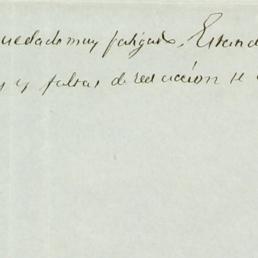 quedado muy fatigado. Estand
s y faltas de redacción se